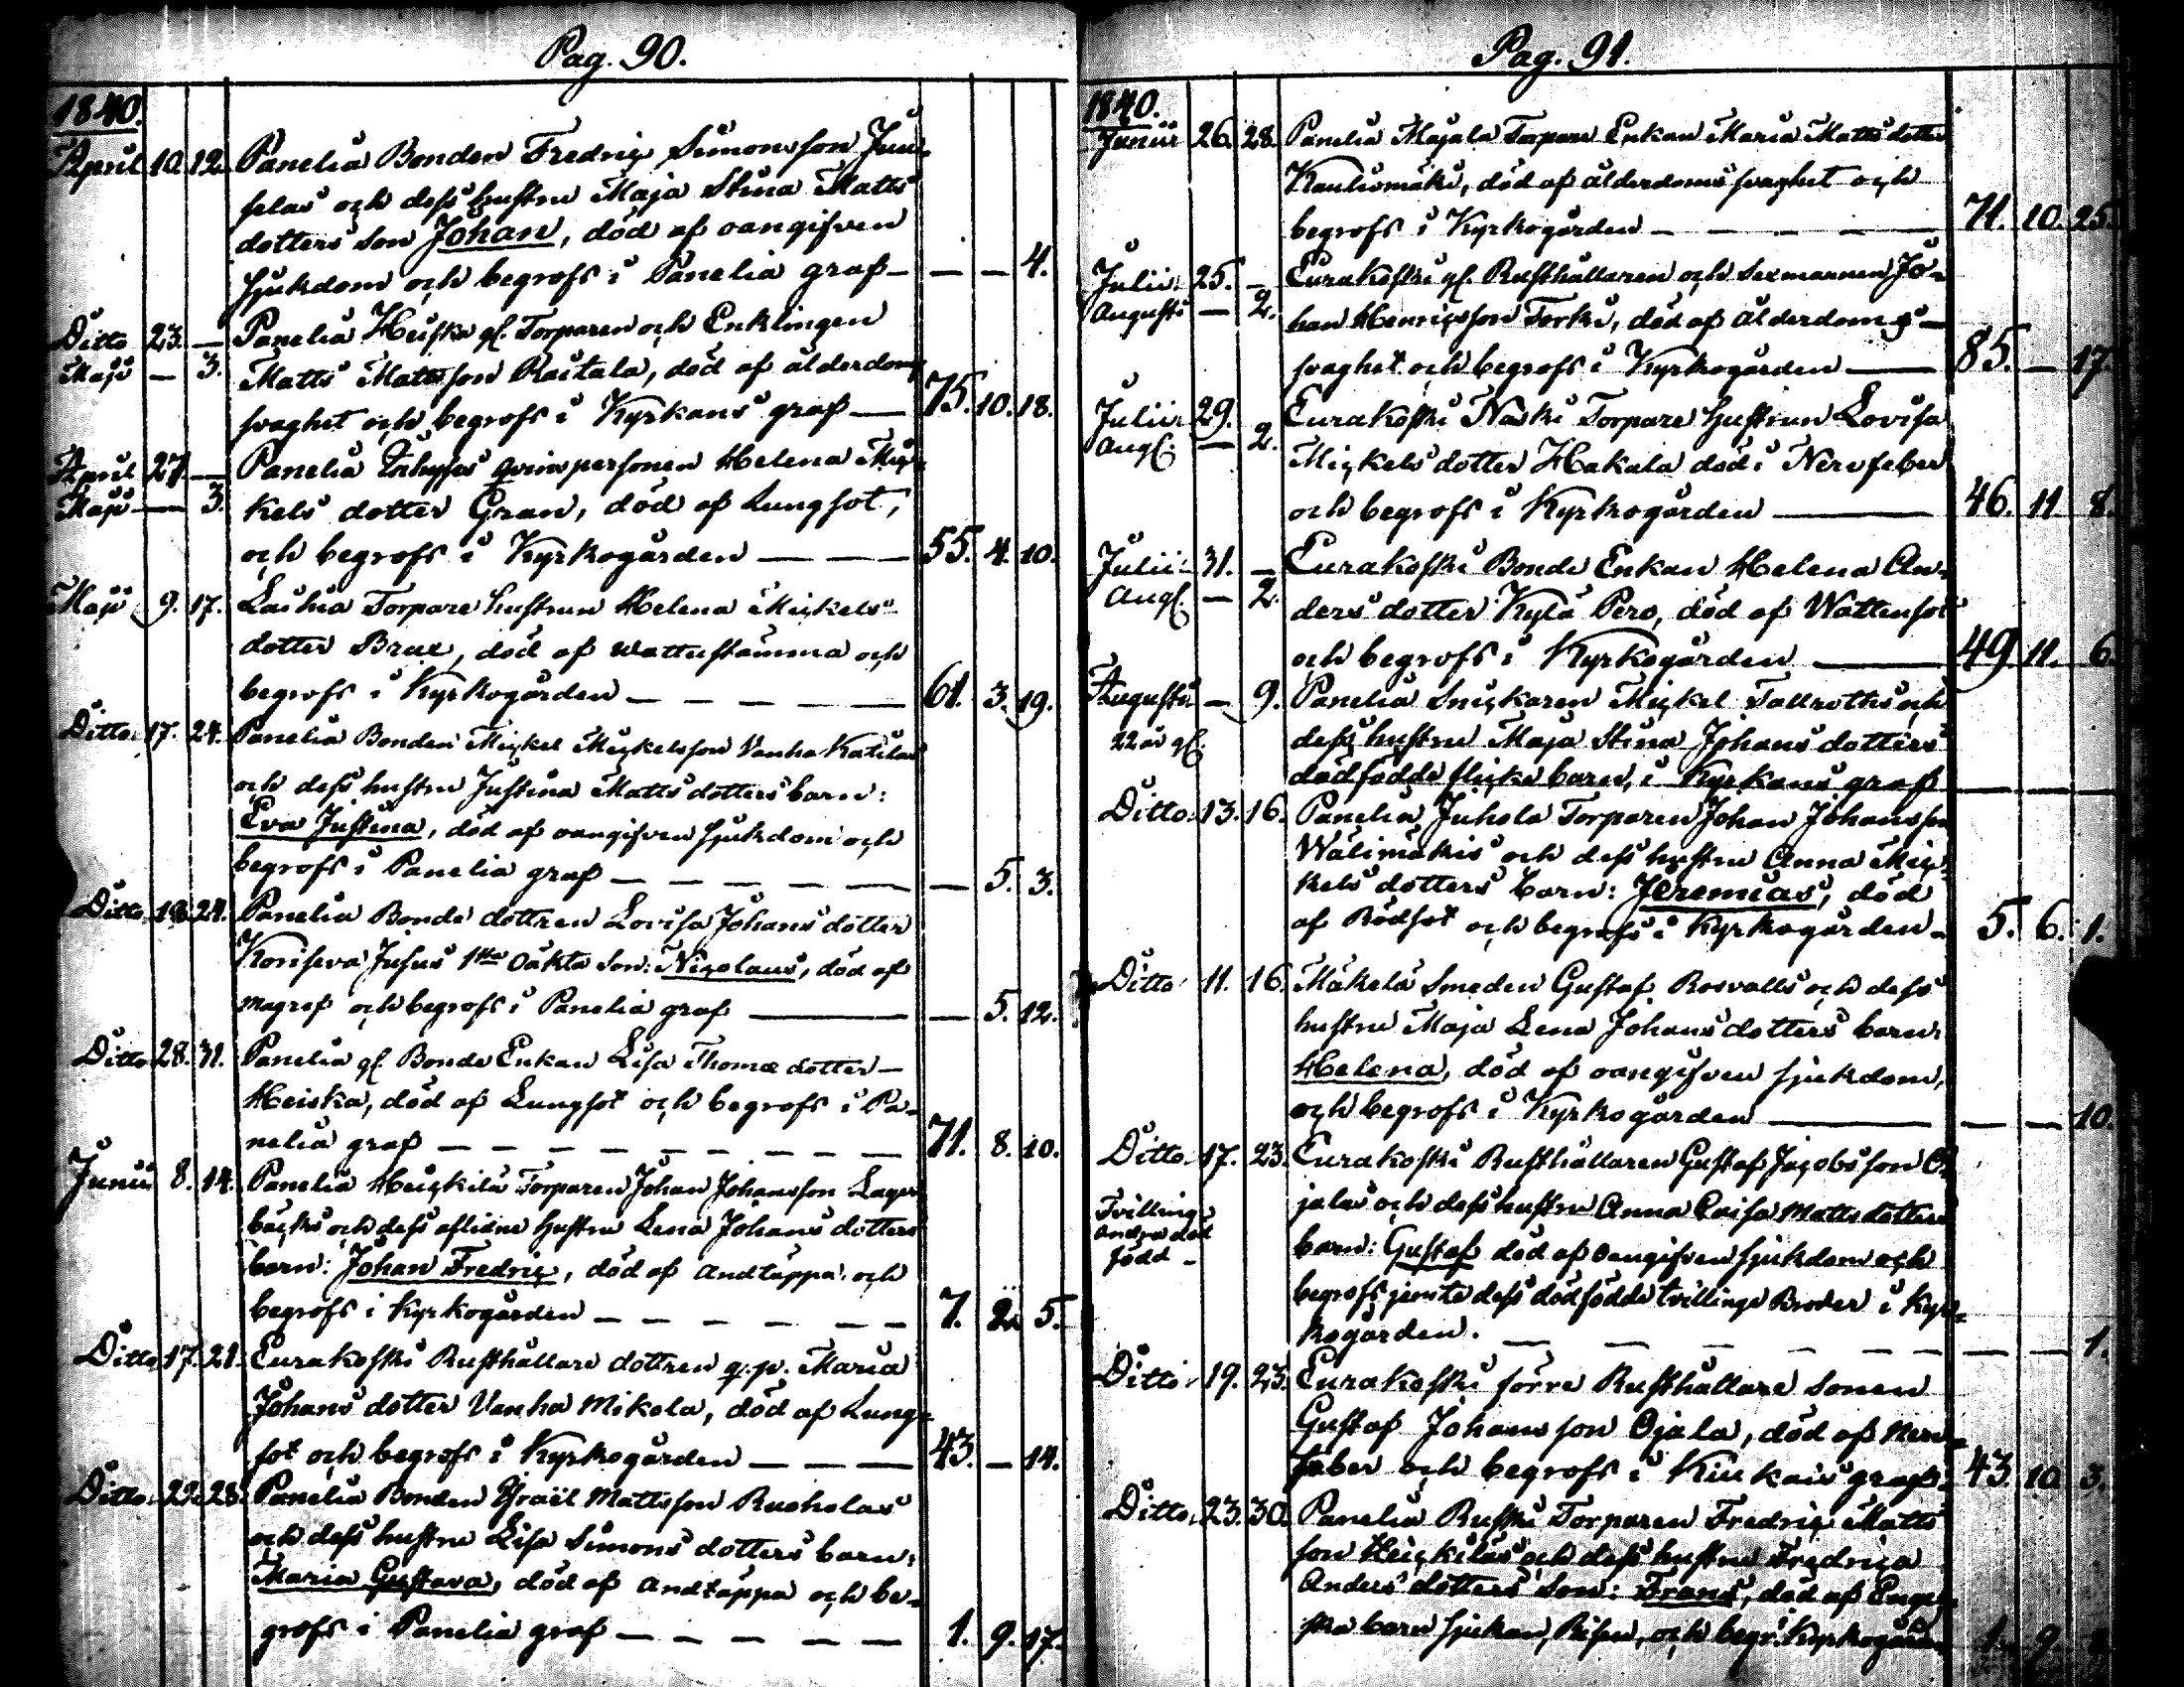 Pag. 90.
1840.
April 10. 12. Panelia Bonden Fredric Simonsson Juu-
selas och dess hustru Maja Stina Matts
dotters son Johan, död af oangifven
sjukdom och begrofs i Panelia graf — — — 4.
Ditto 23. — Panelia Heiska gl. Torparen och Enklingen
Maji — 3. Matts Mattsson Raitala, död af ålderdoms
svaghet och begrofs i Kyrkans graf — 75. 10. 18.
April 27. — Panelia qvinspersonen Helena Mic-
Maji — 3. kels dotter Gran, död af Lungsot,
och begrofs i Kyrkogården — — — 55. 4. 10.
Maji 9. 17. Laihia Torpare hustrun Helena Mickels
dotter Brux, död af wattustämma och
begrofs i Kyrkogården — — — — — 61. 3. 19.
Ditto 17. 24. Panelia Bonden Mickel Mickelsson Vanha Katilas
och dess hustru Justina Matts dotters barn:
Eva Justina, död af oangifven sjukdom och
begrofs i Panelia graf — — — — — — 5. 3.
Ditto 18. 24. Panelia Bonde dottren Lovisa Johans dotter
Koriseva Jusus 1sta Oäkta son: Nicolaus, död af
magref och begrofs i Panelia graf — — 5. 12.
Ditto 28. 31. Panelia gl. Bonde Enkan Lisa Thomæ dotter —
Heiska, död af Lungsot och begrofs i Pa-
nelia graf — — — — — — — — — 71. 8. 10.
Junii 8. 14. Panelia Heickilä Torparen Johan Johansson Lager
bäcks och dess aflidne hustru Lena Johans dotters
barn: Johan Fredric, död af Andtäppa och
begrofs i Kyrkogården — — — — — — 7. 2. 5.
Ditto 17. 21. Eurakoski Rusthållare dottren q.p. Maria
Johans dotter Vanha Mikola, död af Lung-
sot och begrofs i Kyrkogården — — — 43. — 14.
Ditto 22. 28. Panelia Bonden Israël Mattsson Ruoholas
och dess hustru Lisa Simons dotters barn:
Maria Gustava, död af Andtäppa och be-
grofs i Panelia graf — — — — — 1. 9. 17.
Pag. 91.
1840.
Junii 26. 28. Panelia Majala Torpare Enkan Maria Matts dotter
Kaulismäki, död af ålderdoms svaghet och
begrofs i Kyrkogården — — — — — 71. 10. 25.
Julii 25. — Eurakoski gl. Rusthållaren och Sexmannen Jo-
Augusti — 2. han Henricsson Torki, död af ålderdoms —
svaghet och begrofs i Kyrkogården — 85. — 17.
Julii 29. Eurakoski Naski Torpare hustrun Lovisa
Augl. — 2. Mickels dotter Hakala död i Nervfeber
och begrofs i Kyrkogården — 46. 11. 8.
Julii 31. — Eurakoski Bonde Enkan Helena An-
Augl. — 2. ders dotter Kylä Pero, död af Wattensot
och begrofs i Kyrkogården — 49. 11. 6.
Augusti — 9. Panelia Snickaren Mickel Tallroths och
22 år gl. dess hustru Maja Stina Johans dotters
dödfödde flicke barn, i Kyrkans graf — — —
Ditto 13. 16. Panelia Juhola Torparen Johan Johansson
Wälimäkis och dess hustru Anna Mic-
kels dotters barn: Jeremias, död
af Rödsot och begrofs i Kyrkogården — 5. 6. 1.
Ditto 11. 16. Mäkelä Smeden Gustaf Rosvalls och dess
hustru Maja Lena Johans dotters barn:
Helena, död af oangifven sjukdom,
och begrofs i Kyrkogården — — — 10.
Ditto 17. 23. Eurakoski Rusthållaren Gustaf Jacobsson O-
jalas och dess hustru Anna Caisa Matts dotters
Tvilling
andra död
född —
barn: Gustaf död af oangifven sjukdom och
begrofs jemte dess dödfödde tvillinge Broder i Kyr-
kogården. — — — — — — — 1.
Ditto 19. 23. Eurakoski förre Rusthållare sonen
Gustaf Johansson Ojala, död af Nerv-
feber och begrofs i Kiukais graf 43. 10. 3.
Ditto 23. 30. Panelia Ruski Torparen Fredric Matts
son Heickiläs och dess hustru Fredrica
Anders dotters son: Frans, död af Engel-
ska barn sjukan, Risen, och begr. i Kyrkogården 1. 9.